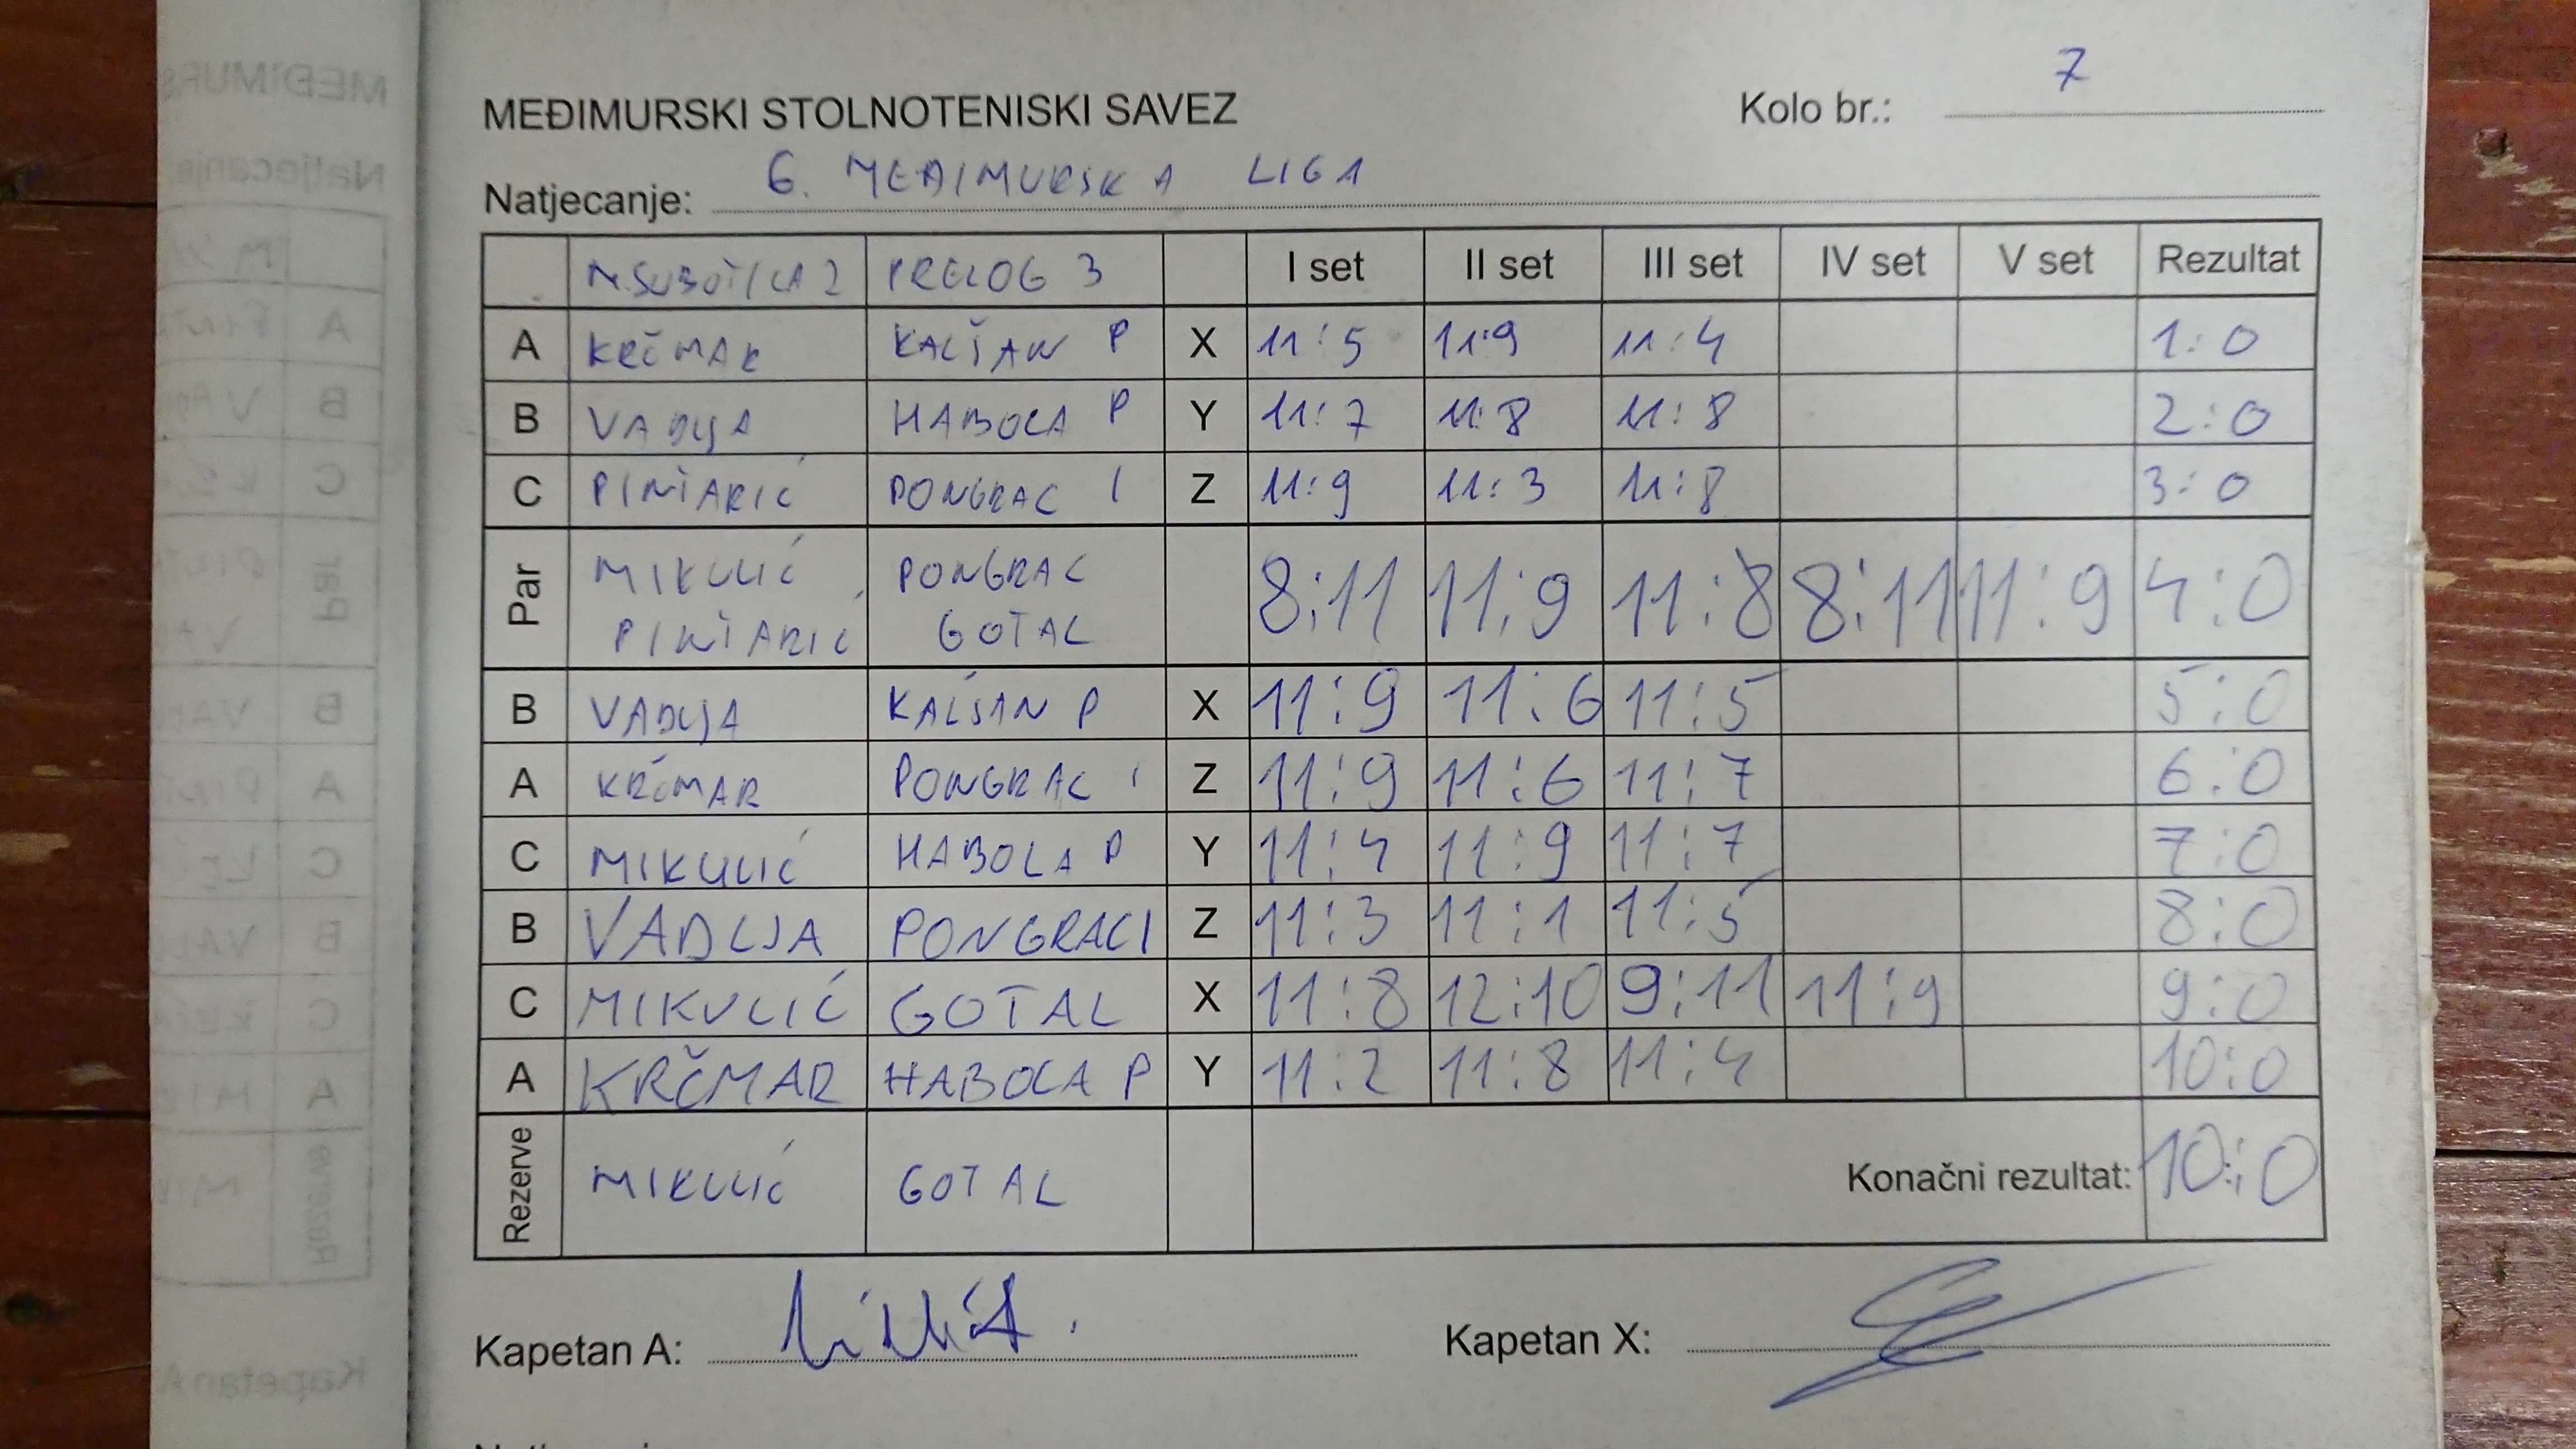 MEĐIMURSKI STOLNOTENISKI SAVEZ Kolo br.: 7
Natjecanje: 6. MEĐIMURSKA LIGA
M.SUBOTICA 2 PRELOG 3 I set II set III set IV set V set Rezultat
A KRČMAR KALŠAN P X 11:5 11:9 11:4 1:0
B VADLJA HABOLA P Y 11:7 11:8 11:8 2:0
C PINTARIĆ PONGRAC I Z 11:9 11:3 11:8 3:0
Par MIKULIĆ PONGRAC 8:11 11:9 11:8 8:11 11:9 4:0
PINTARIĆ GOTAL
B VADLJA KALŠAN P X 11:9 11:6 11:5 5:0
A KRČMAR PONGRAC I Z 11:9 11:6 11:7 6:0
C MIKULIĆ HABOLA P Y 11:4 11:9 11:7 7:0
B VADLJA PONGRAC I Z 11:3 11:1 11:5 8:0
C MIKULIĆ GOTAL X 11:8 12:10 9:11 11:9 9:0
A KRČMAR HABOLA P Y 11:2 11:8 11:4 10:0
Rezerve MIKULIĆ GOTAL Konačni rezultat: 10:0
Kapetan A: Kapetan X: